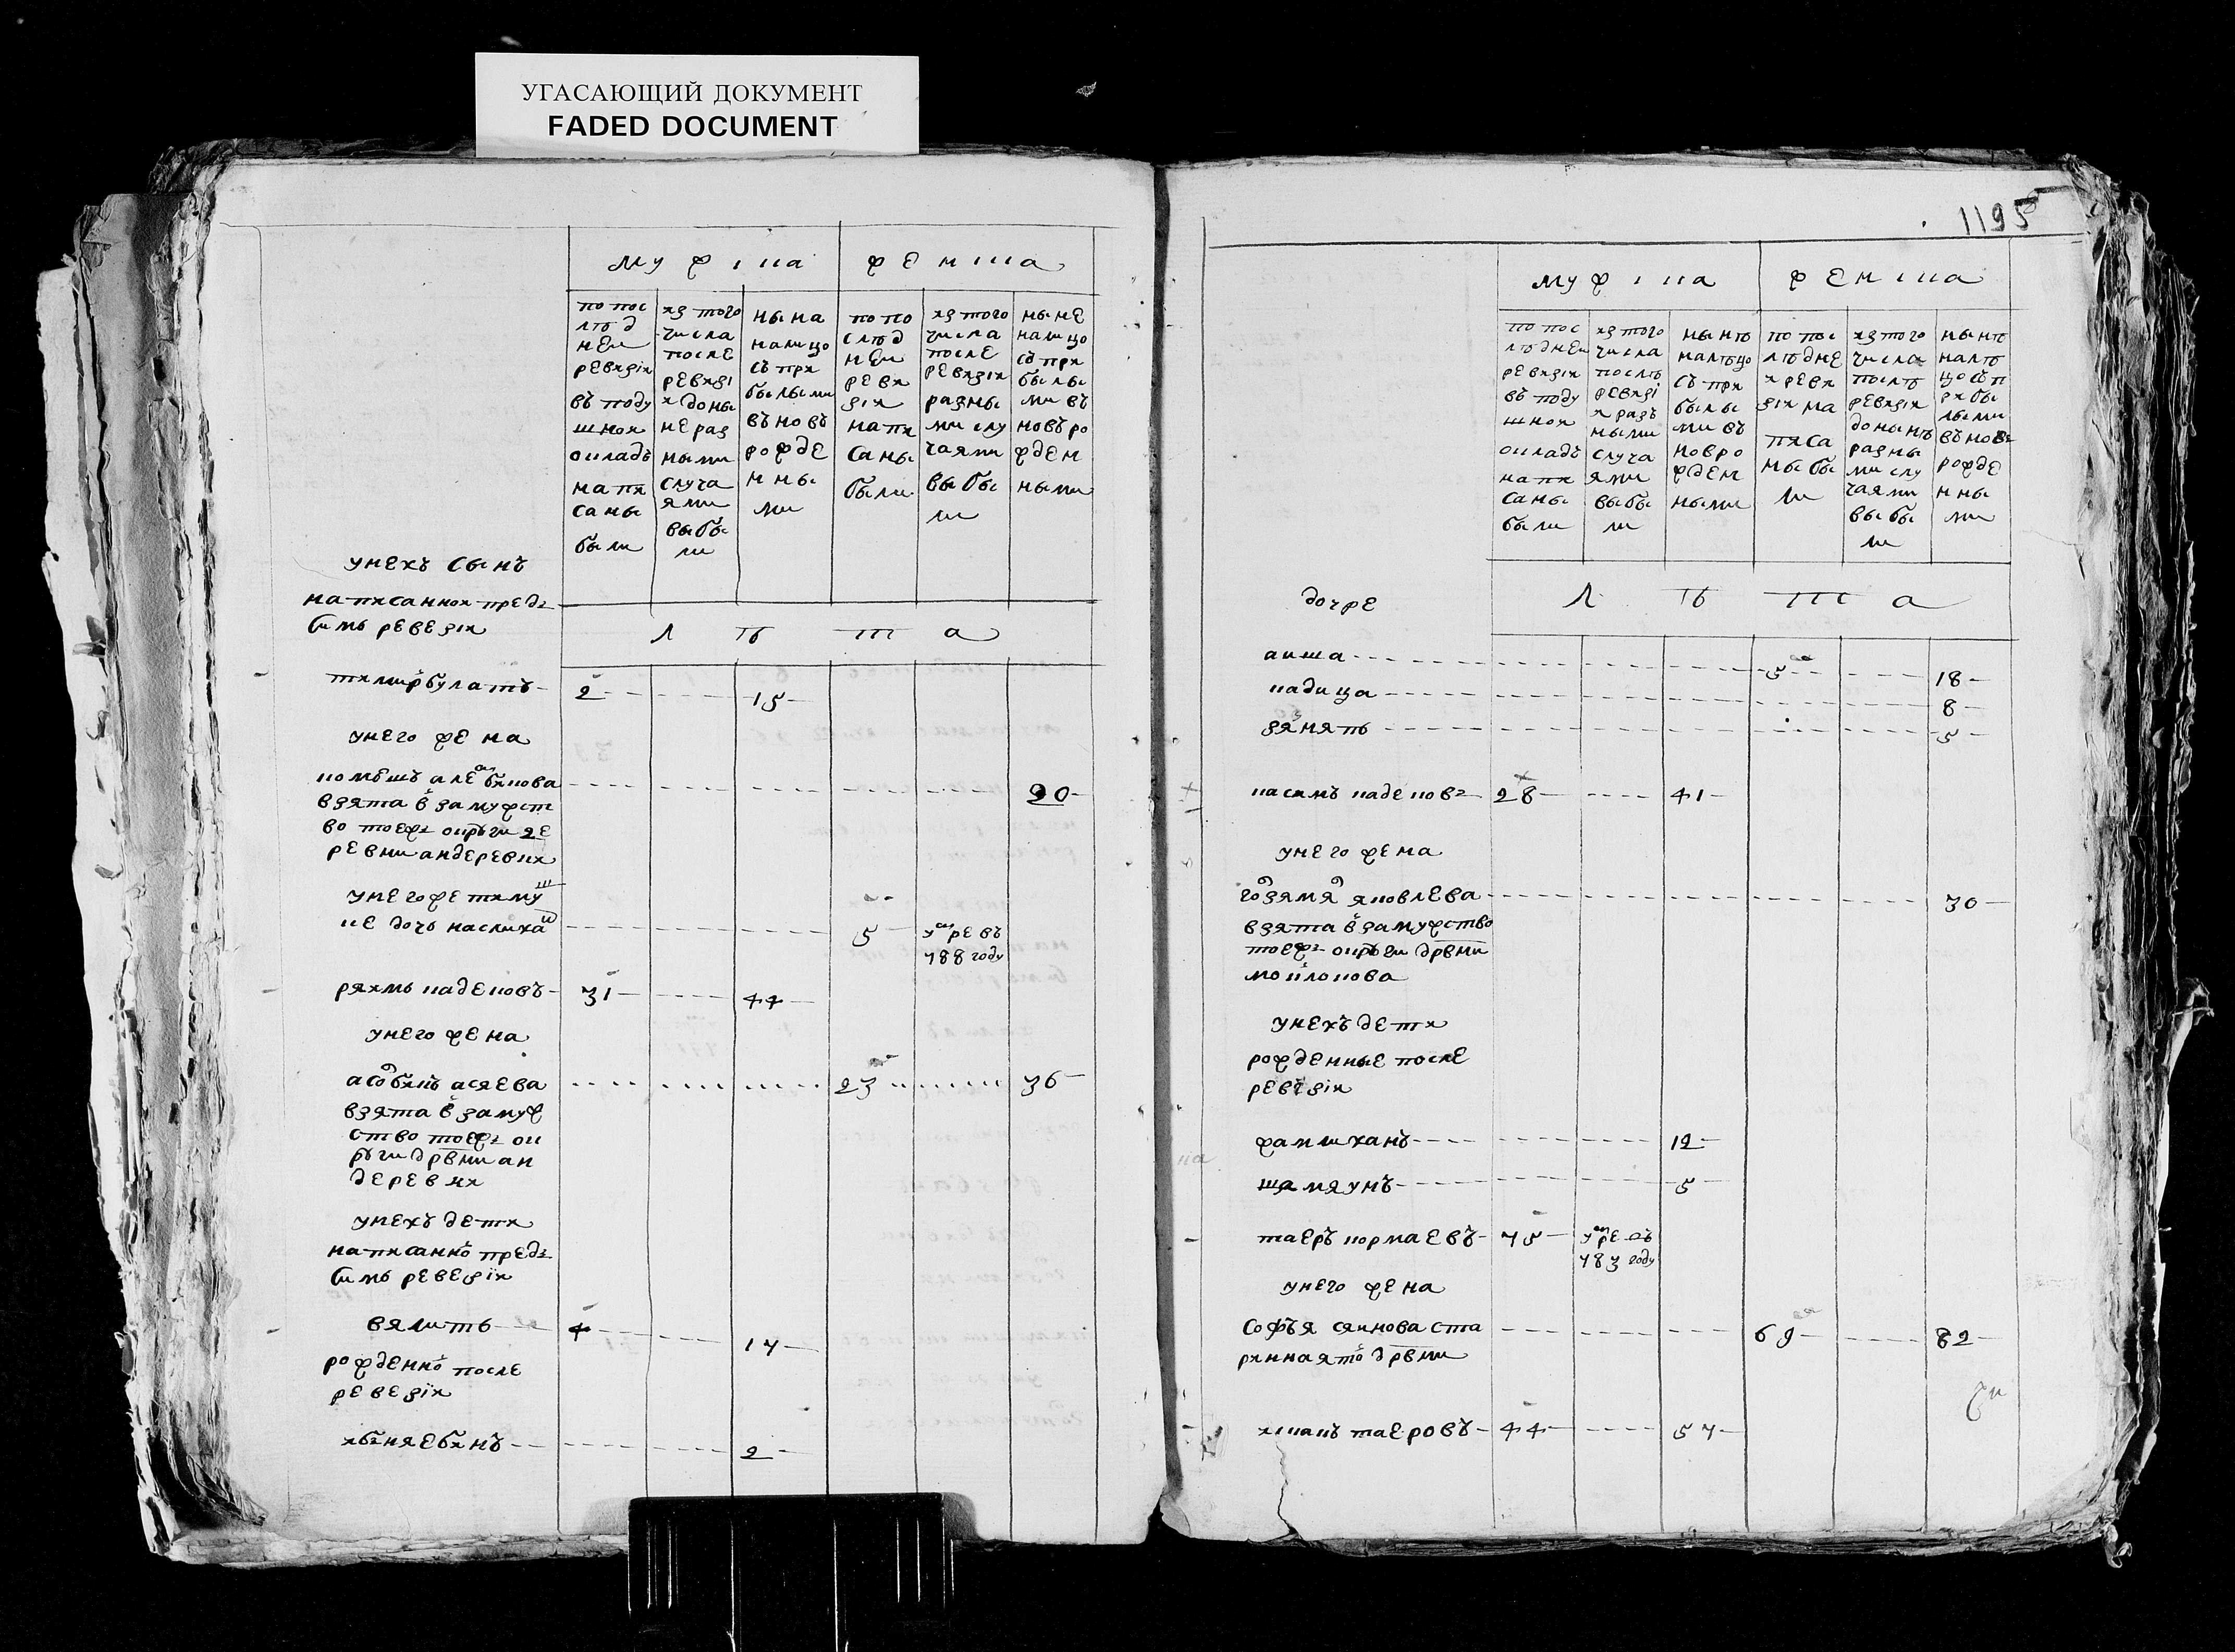 УГАСАЮЩИЙ ДОКУМЕНТ
FADED DOCUMENT
мужеска женска
по пос
лѣд
неи
ревизіи
въ поду
шнои
окладъ
напи
саны
были
из того
числа
после
ревизі
и доны
не раз
ными
случа
ями
выбы
ли
ны на
лицо
съ при
былыми
въ новъ
рожде
нны
ми
по по
слѣд
неи
реви
зіи
напи
саны
были
из того
числа
после
ревизіи
разны
ми слу
чаями
выбы
ли
ныне
налицо
съ при
былы
ми въ
новъ ро
жден
ными
унехъ сынъ
написаннои пред
симъ ревезіи
лѣта
тимирбулатъ 2 15
унего жена
20
взята в замужст
во тоеж округи де
ревни андеревки
5 умре въ
788 году
рякмь кадековъ 31 44
унего жена
асяева 23 36
взята в замуж
ство тоеж ок
руги дрвни ан
деревки
унехъ дети
написанно пред
симъ ревезіи
вялить 4 17
рожденно после
ревезіи
2
1195
мужска женска
по пос
лѣднеи
ревизіи
въ поду
шнои
окладъ
напи
саны
были
из того
числа
послѣ
ревизі
и разъ
ными
случа
ями
выбы
ли
нынѣ
налѣцо
съ при
былы
ми въ
новро
жден
ными
по пос
лѣдне
и реви
зіи на
писа
ны бы
ли
из того
числа
послѣ
ревизіи
донынѣ
разны
ми слу
чаями
выбы
ли
нынѣ
налѣ
цо съ п
рибы
лыми
въ новъ
рожде
нны
ми
дочре
лѣта
акша 5 18
кадица 8
зянять 5
касимъ кадековъ 28 41
унего жена
яковлева 30
взята в замужство
тоеж округи дрвни
моклокова
унехъ дети
рожденные после
ревѣзіи
жанишханъ 12
шамяунъ 5
таеръ кормаевъ 75 умре въ
783 году
унего жена
софья сяинова ста 69 82
риннаято дрвни
таеровъ 44 57